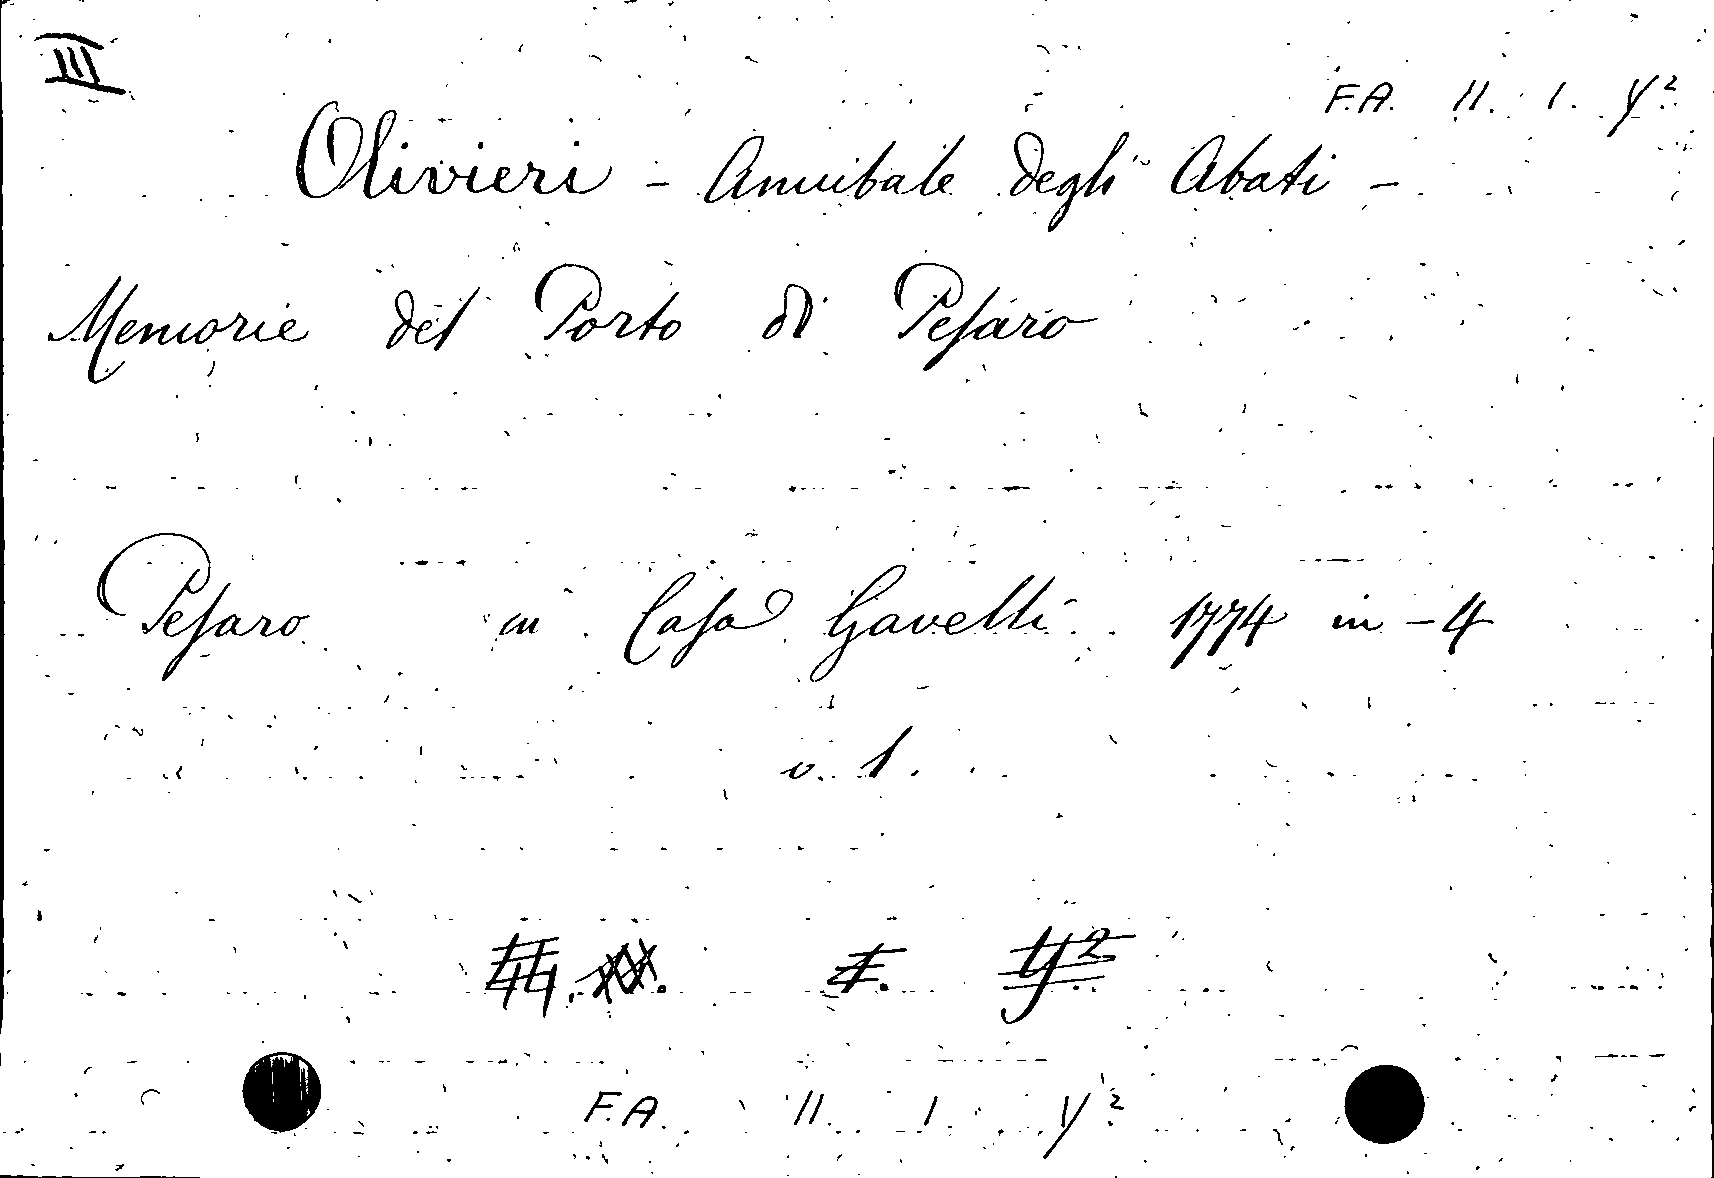 III
F.A. II. I. Y².
Olivieri - Annibale degli Abati -
Memorie del Porto di Pesaro
Pesaro in Casa Gavelli 1774 in-4
v. 1.
I. Y²
F.A. II. I. Y²